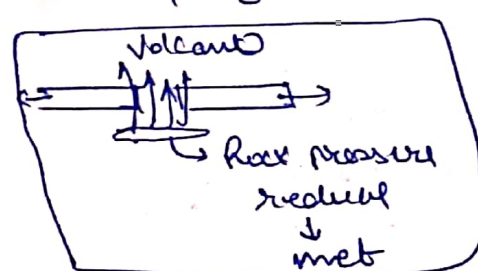 Volcano
Rock pressure
reduce
↓
melt